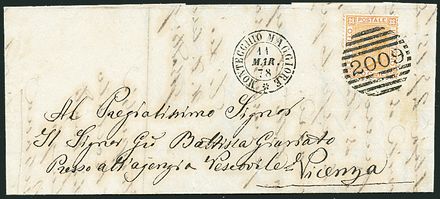 MONTECCHIO MAGGIORE
11
MAR
78
POSTALE
2009
Al Pregiatissimo Signor
Il Signor Giu Battista
Presso all'agenzia Vescovile
Vicenza